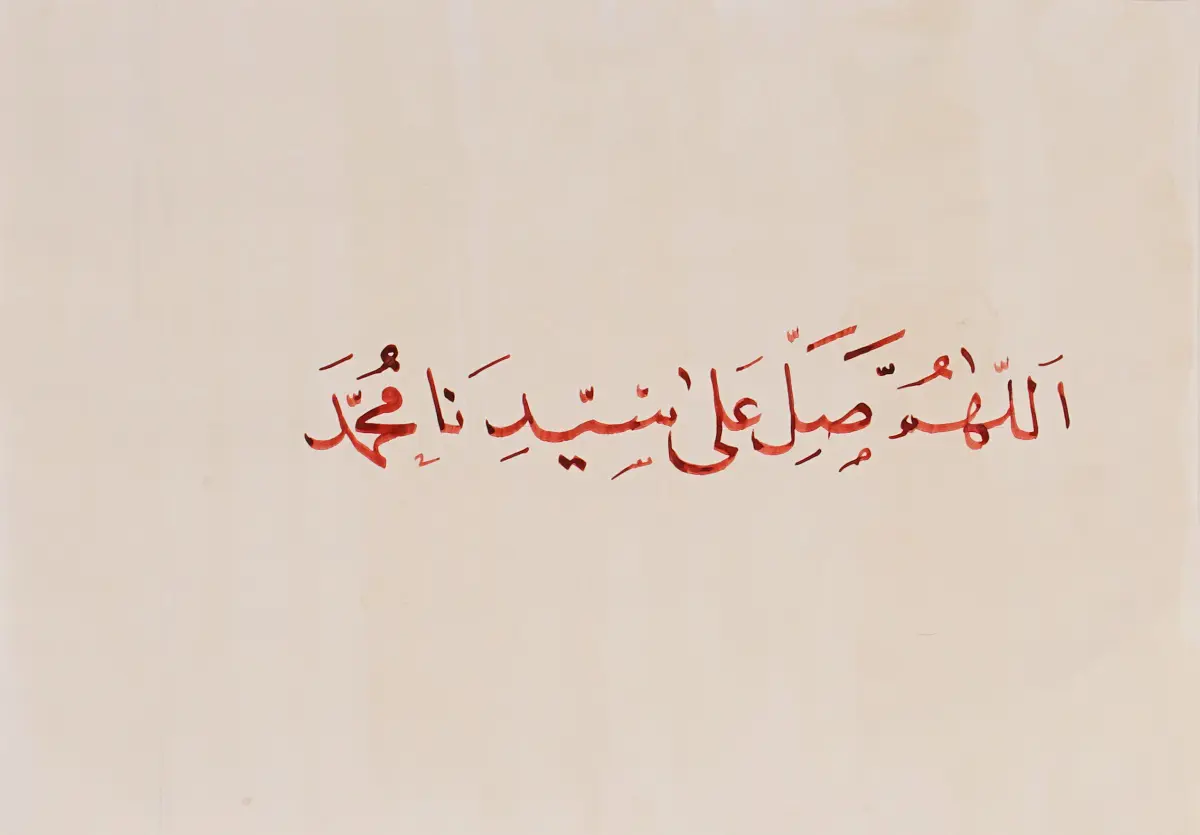 اَللّٰهُمَّ صَلِّ عَلٰى سَيِّدِنَا مُحَمَّدَ